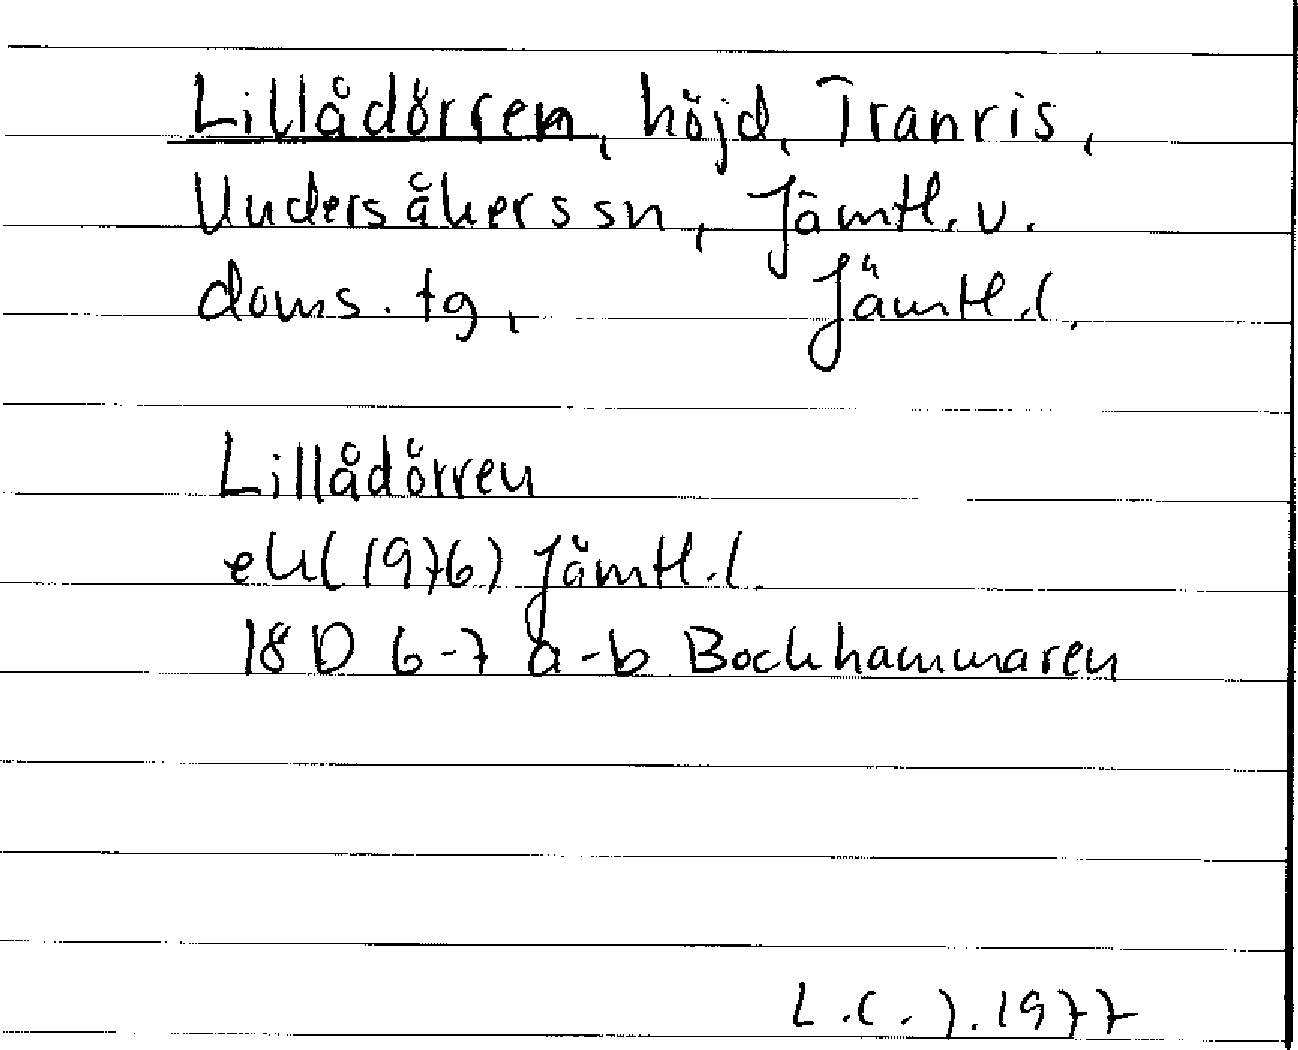 Lillådörren, höjd, Tranris,
Undersåkers sn, Jämtl. v.
doms. tg, Jämtl. l.
Lillådörren
ek (1976) Jämtl. l.
18 D 6-7 a-b Bockhammaren
L. C. J. 1977